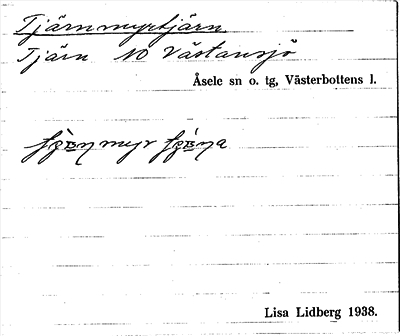 Tjärnmyrtjärn
Tjärn NO Västansjö
Åsele sn o. tg, Västerbottens l.
Lisa Lidberg 1938.